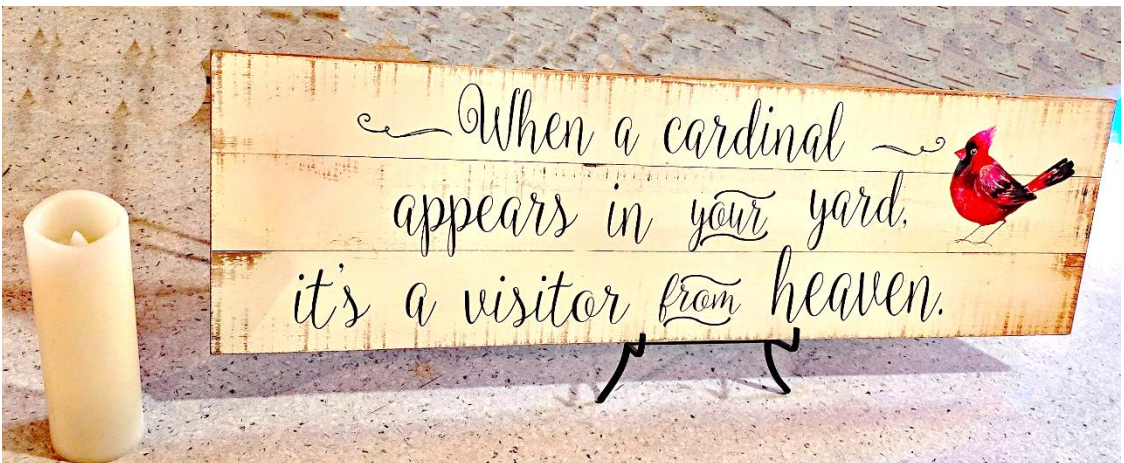 When a cardinal
appears in your yard,
it's a visitor from heaven.